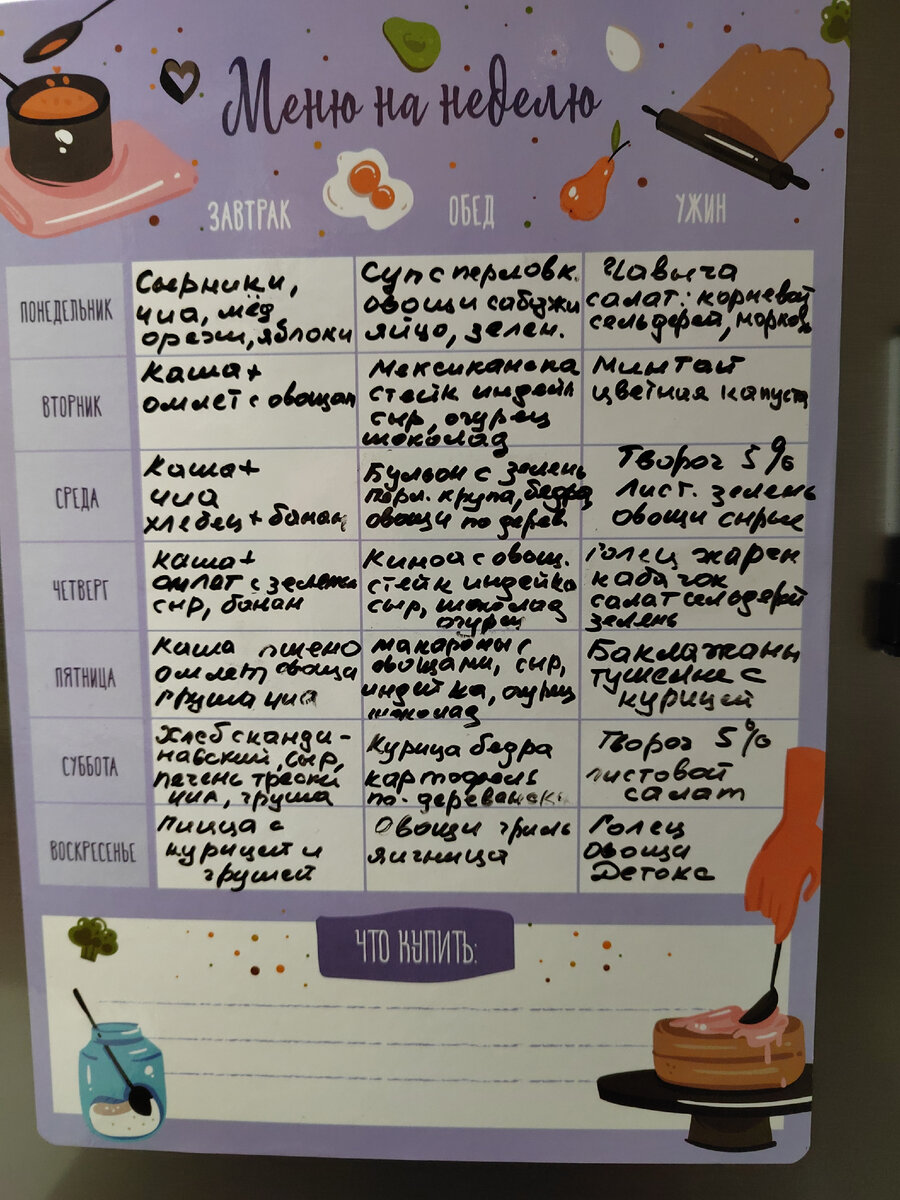 Меню на неделю
ЗАВТРАК ОБЕД УЖИН
ПОНЕДЕЛЬНИК
Сырники,
чиа, мёд
орехи, яблоки
Суп с перловк.
овощи сабджи
яйцо, зелен.
Чавыча
салат: корневой
сельдерей, морковь
ВТОРНИК
каша+
омлет с овощам
Мексиканска
стейк индейк
сыр, огурец
шоколад
Минтай
цветная капуста
СРЕДА
Каша+
чиа
хлебец + банан
Бульон с зелень
перл. крупа, бедра
овощи по дерев.
Творог 5%
Лист. зелень
овощи сырые
ЧЕТВЕРГ
каша+
омлет с зелень
сыр, банан
Киноа с овощ.
стейк индейка
сыр, шоколад
огурец
Голец жарен
кабачок
салат сельдерей
зелень
ПЯТНИЦА
Каша пшено
омлет овощи
груша чиа
макароны с
овощами, сыр,
индейка, огурец
шоколад
Баклажаны
тушеные с
курицей
СУББОТА
Хлеб сканди-
навский, сыр,
печень трески
чиа, груша
Курица бедра
картофель
по-деревенски
Творог 5%
листовой
салат
ВОСКРЕСЕНЬЕ
Пицца с
курицей и
грушей
Овощи гриль
яичница
Голец
овощи
Детокс
ЧТО КУПИТЬ: